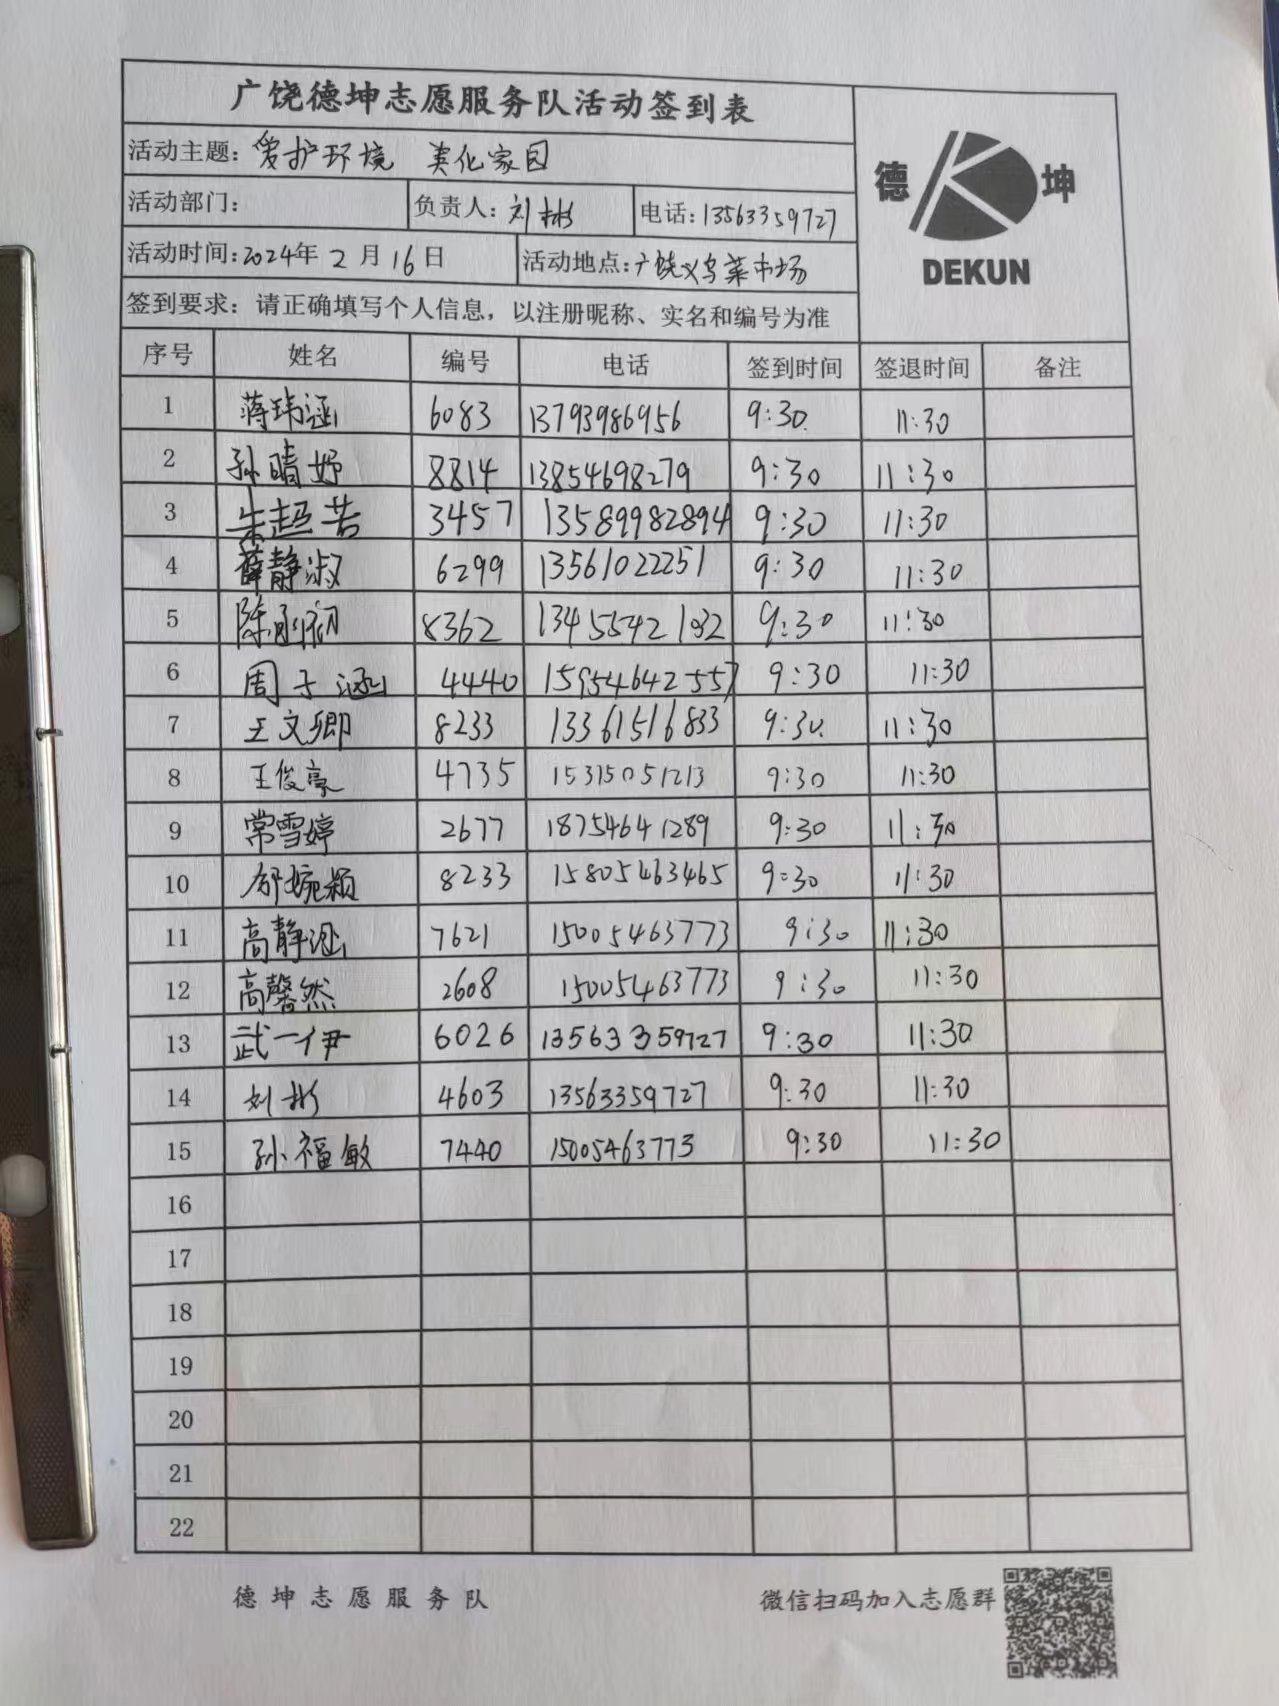 广饶德坤志愿服务队活动签到表
活动主题：爱护环境 美化家园
德 坤
DEKUN
活动部门： 负责人：刘彬 电话：13563359727
活动时间：2024年2月16日 活动地点：广饶义乌菜市场
签到要求：请正确填写个人信息，以注册昵称、实名和编号为准
序号 姓名 编号 电话 签到时间 签退时间 备注
1 蒋玮涵 6083 13793986956 9:30 11:30
2 孙晴妤 8814 13854698279 9:30 11:30
3 朱超芸 3457 13589982894 9:30 11:30
4 薛静淑 6299 13561022251 9:30 11:30
5 陈 8362 13455421932 9:30 11:30
6 周子涵 4440 15954642557 9:30 11:30
7 王文卿 8233 13361516833 9:30 11:30
8 王俊豪 4735 15315051213 9:30 11:30
9 常雪婷 2677 18754641289 9:30 11:30
10 婉颖 8233 15805463465 9:30 11:30
11 高静涵 7621 15005463773 9:30 11:30
12 高馨然 2608 15005463773 9:30 11:30
13 武一伊 6026 13563359727 9:30 11:30
14 刘彬 4603 13563359727 9:30 11:30
15 孙福敏 7440 15005463773 9:30 11:30
16
17
18
19
20
21
22
德坤志愿服务队 微信扫码加入志愿群